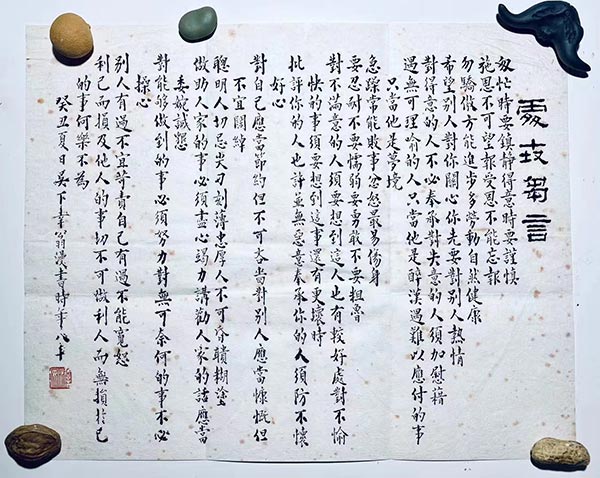 處世芻言
匆忙時要鎮靜得意時要謹慎
施恩不可望報受恩不能忘報
勿驕傲方能進步多勞動自然健康
希望別人對你關心你先要對別人熱情
對得意的人不必奉承對失意的人須加慰藉
遇無可理喻的人只當他是醉漢遇難以應付的事
只當他是夢境
急躁常能敗事忿怒最易傷身
要忍耐不要懦弱要勇敢不要粗魯
對不滿意的人須要想到這人也有較好處對不愉
快的事須要想到這事還有更壞時
批評你的人也許並無惡意奉承你的人須防不懷
好心
對自己應當節約但不可吝嗇對別人應當慷慨但
不宜闊綽
聰明人切忌尖刁刻薄忠厚人不可昏聵糊塗
做助人家的事必須盡心竭力講勸人家的話應當
委婉誠懇
對能够做到的事必須努力對無可奈何的事不必
操心
別人有過不宜苛責自己有過不能寬恕
利己而損及他人的事切不可做利人而無損於己
的事何樂不為
癸丑夏日吳下翁漫書時年八十